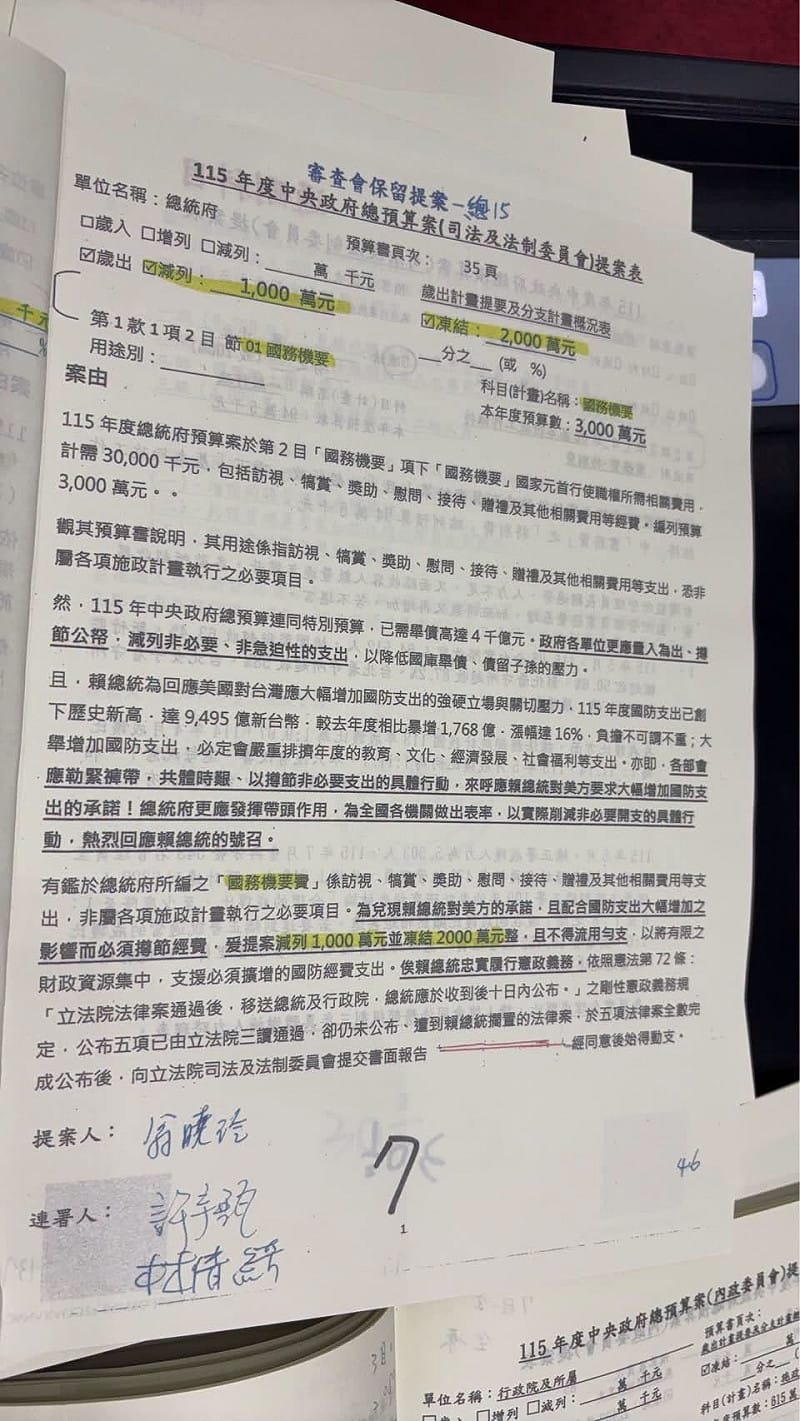 審查會保留提案-總15
115 年度中央政府總預算案(司法及法制委員會)提案表
單位名稱：總統府
預算書頁次： 35 頁
□歲入 □增列 □減列：______萬 千元
歲出計畫提要及分支計畫概況表
☑歲出 ☑減列： 1,000 萬元
☑凍結： 2,000 萬元
__分之__ (或 %)
第 1 款 1 項 2 目 節 01 國務機要
科目(計畫)名稱：國務機要
用途別：
本年度預算數：3,000 萬元
案由
115 年度總統府預算案於第 2 目「國務機要」項下「國務機要」國家元首行使職權所需相關費用，
計需 30,000 千元，包括訪視、犒賞、獎助、慰問、接待、贈禮及其他相關費用等經費。編列預算
3,000 萬元。。
觀其預算書說明，其用途係指訪視、犒賞、獎助、慰問、接待、贈禮及其他相關費用等支出，恐非
屬各項施政計畫執行之必要項目。
然，115 年中央政府總預算連同特別預算，已需舉債高達 4 千億元。政府各單位更應量入為出、撙
節公帑，減列非必要、非急迫性的支出，以降低國庫舉債、債留子孫的壓力。
且，賴總統為回應美國對台灣應大幅增加國防支出的強硬立場與關切壓力，115 年度國防支出已創
下歷史新高，達 9,495 億新台幣，較去年度相比暴增 1,768 億，漲幅達 16%，負擔不可謂不重；大
舉增加國防支出，必定會嚴重排擠年度的教育、文化、經濟發展、社會福利等支出。亦即，各部會
應勒緊褲帶，共體時艱、以撙節非必要支出的具體行動，來呼應賴總統對美方要求大幅增加國防支
出的承諾！總統府更應發揮帶頭作用，為全國各機關做出表率，以實際削減非必要開支的具體行
動，熱烈回應賴總統的號召。
有鑑於總統府所編之「國務機要費」係訪視、犒賞、獎助、慰問、接待、贈禮及其他相關費用等支
出，非屬各項施政計畫執行之必要項目。為兌現賴總統對美方的承諾，且配合國防支出大幅增加之
影響而必須撙節經費，爰提案減列 1,000 萬元並凍結 2000 萬元整，且不得流用勻支，以將有限之
財政資源集中，支援必須擴增的國防經費支出。俟賴總統忠實履行憲政義務，依照憲法第 72 條：
「立法院法律案通過後，移送總統及行政院，總統應於收到後十日內公布。」之剛性憲政義務規
定，公布五項已由立法院三讀通過，卻仍未公布、遭到賴總統擱置的法律案，於五項法律案全數完
成公布後，向立法院司法及法制委員會提交書面報告 經同意後始得動支。
提案人：翁曉玲
7
46
連署人：許宇甄
林倩綺
1
115 年度中央政府總預算案(內政委員會)提
預算書頁次：
單位名稱：行政院及所屬
萬 千元
☑凍結：
□增列 □減列：
萬 千元
分之
科目(計畫)名稱：施政
度預算數：615萬